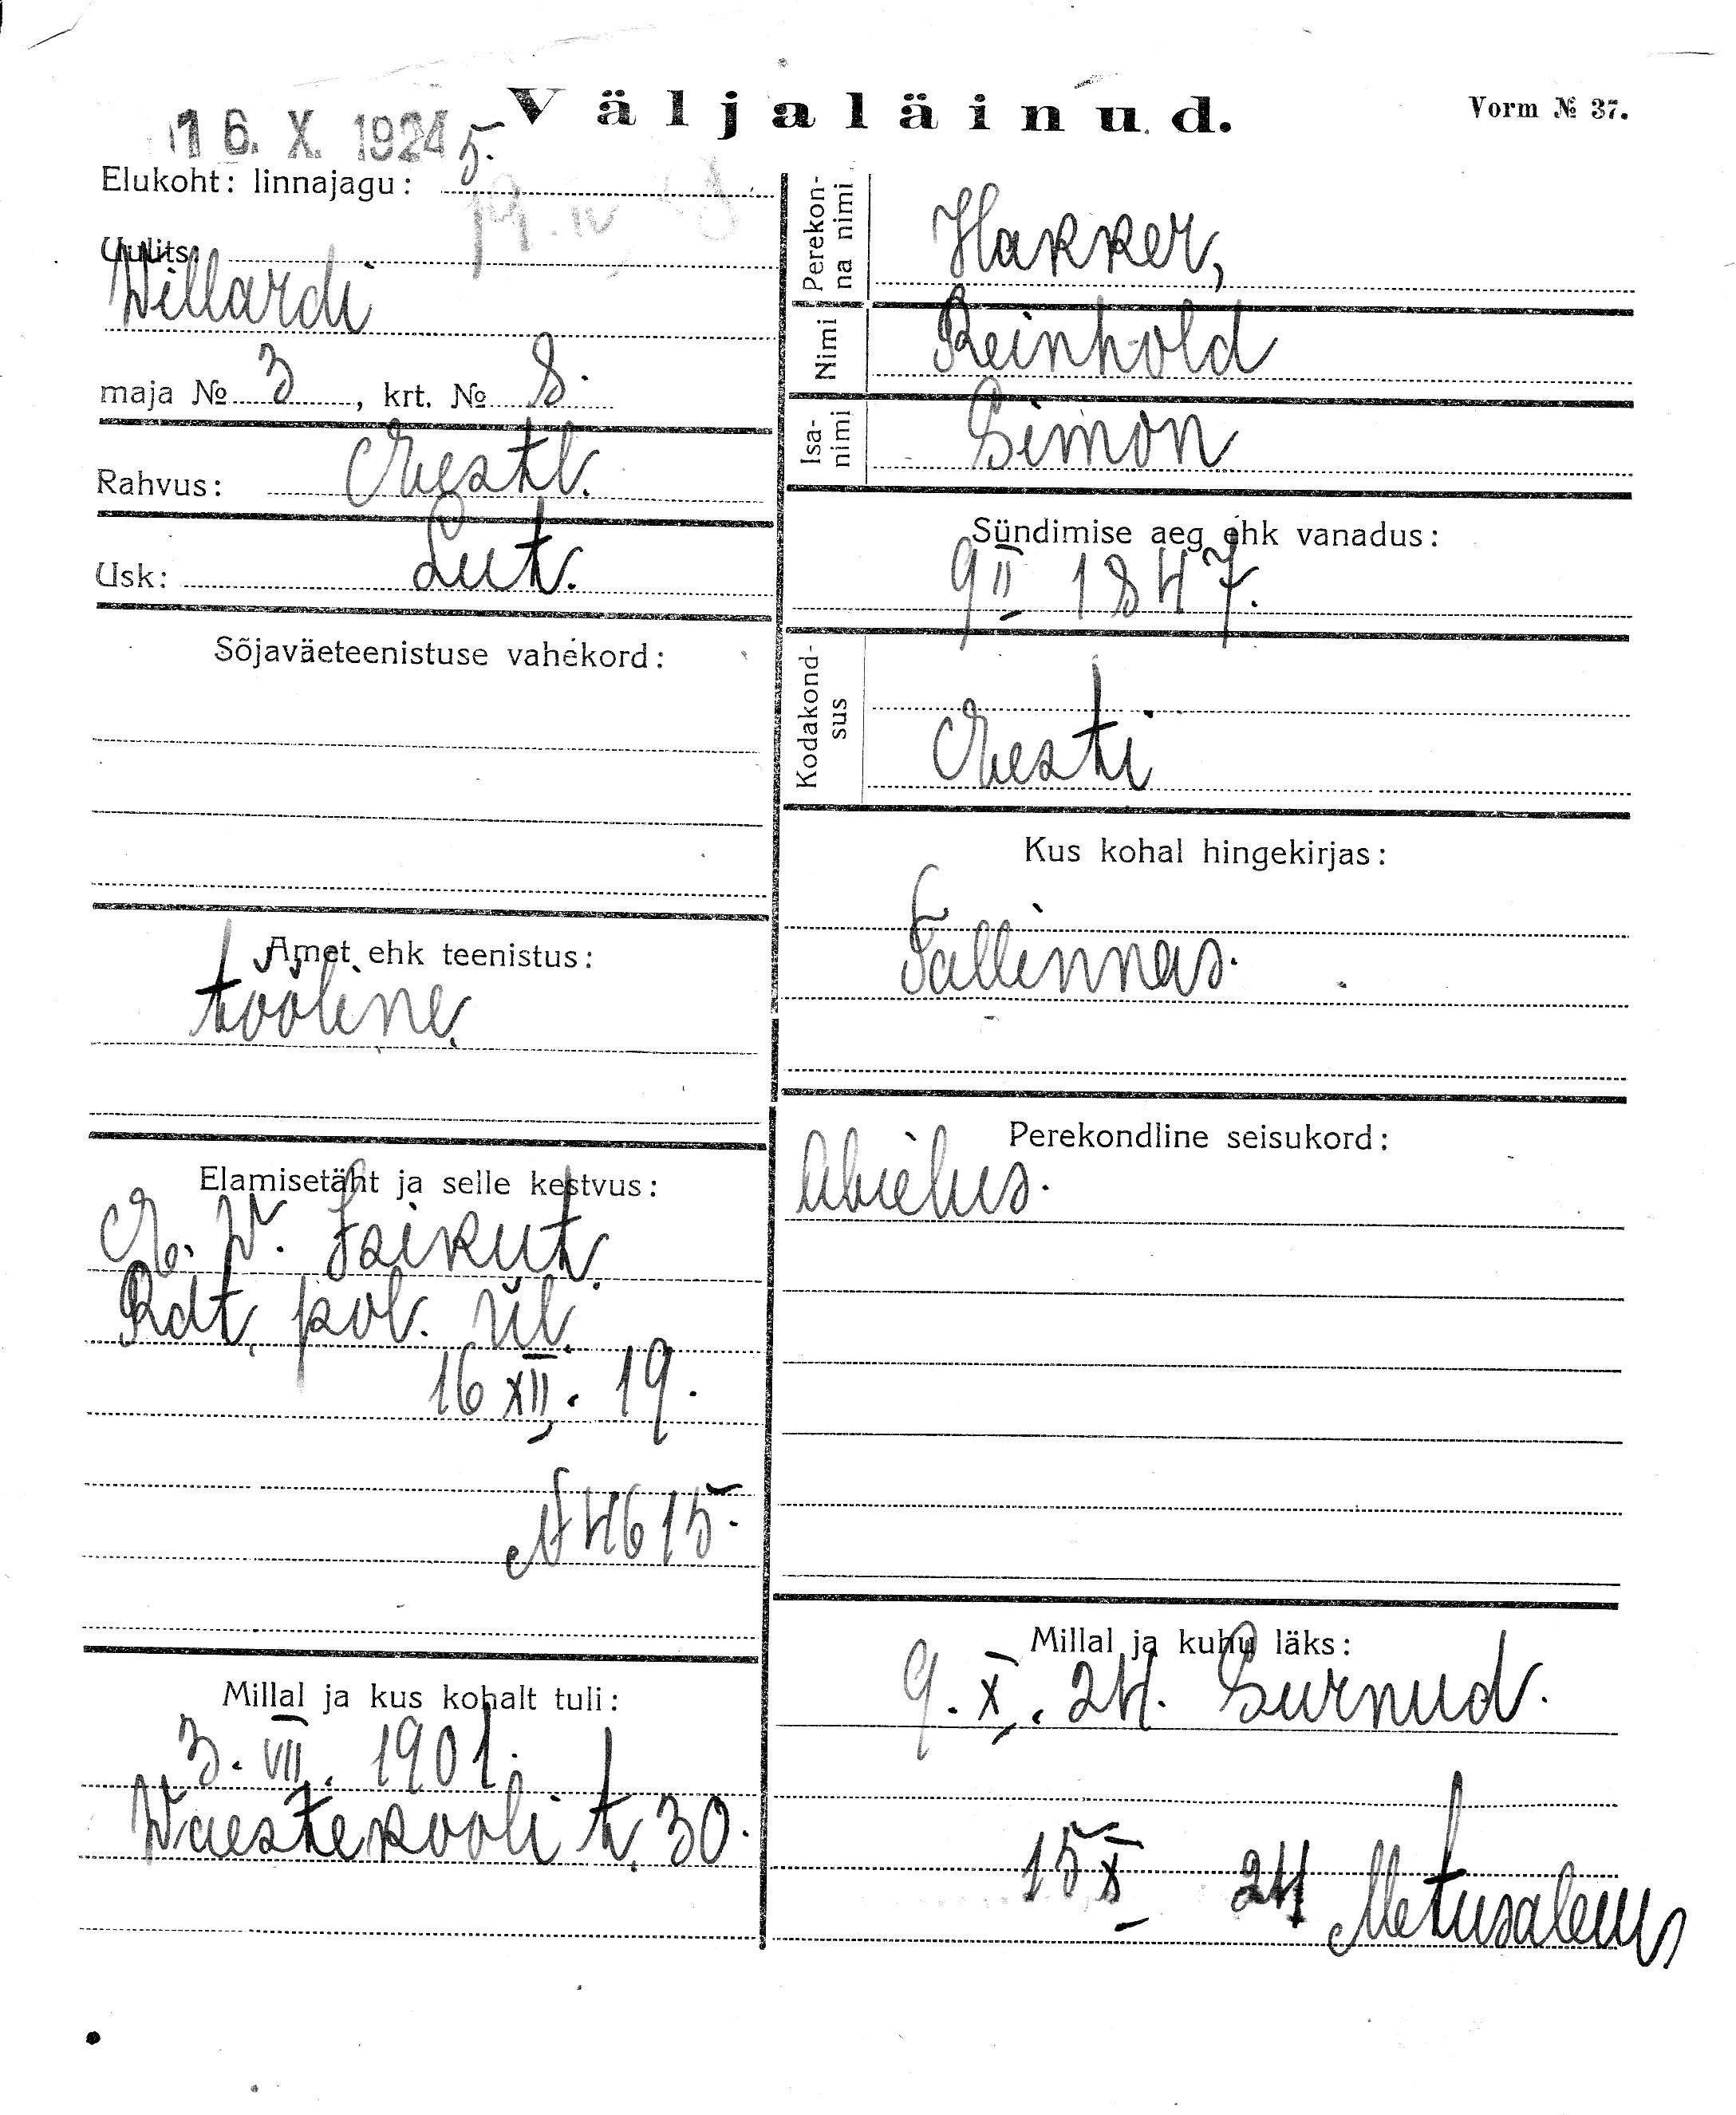 Väljaläinud.
Vorm № 37.
16. X. 1924
5.
Elukoht: linnajagu:
19. IV
Uulits
Willardi
maja № 3, krt. № 8.
Rahvus: Eestl.
Usk: Lut.
Sõjaväeteenistuse vahekord:
Amet ehk teenistus:
tööline.
Elamisetäht ja selle kestvus:
E. W. Isikut.
Rdt. pol. ül.
16 XII. 19.
№ 4615.
Millal ja kus kohalt tuli:
3. VII. 1901.
Waestekooli t. 30.
Perekon-
na nimi
Hakker,
Nimi
Reinhold
Isa-
nimi
Simon
Sündimise aeg ehk vanadus:
9 II 1847.
Kodakond-
sus
Eesti
Kus kohal hingekirjas:
Tallinnas.
Perekondline seisukord:
Abielus.
Millal ja kuhu läks:
9. X. 24. Surnud.
15 X 24 Metusalem